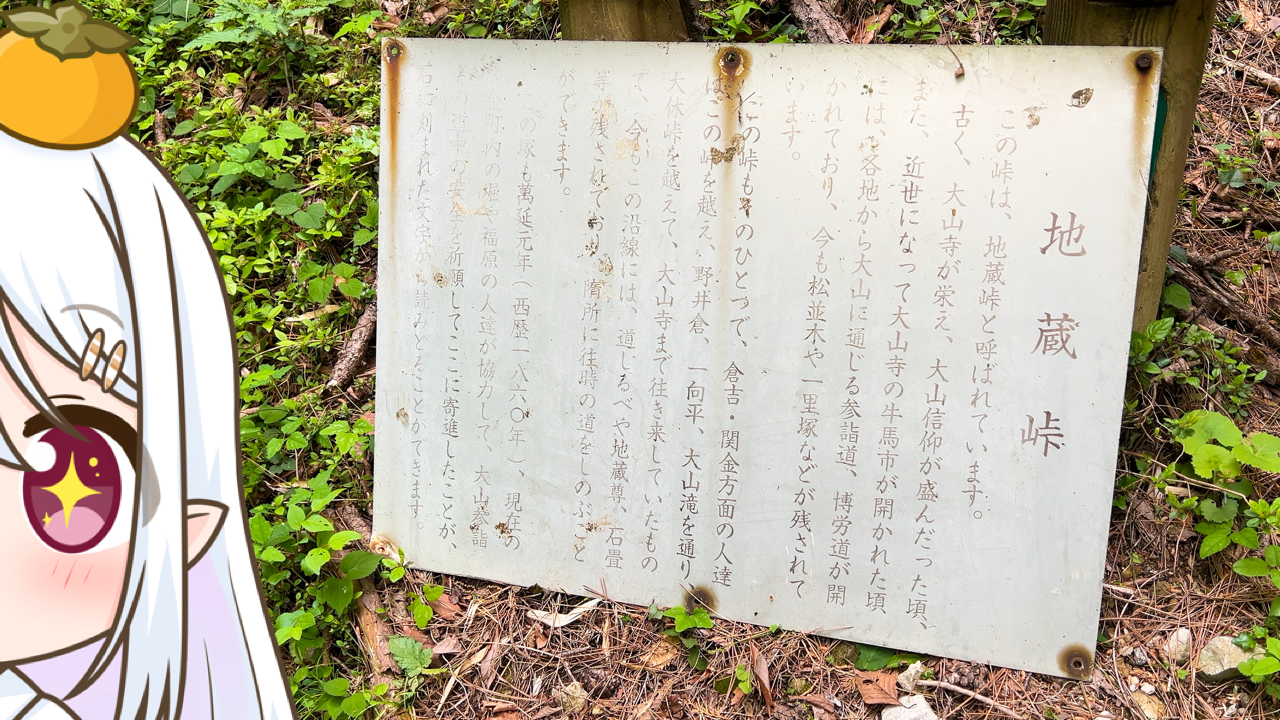 地蔵峠
この峠は、地蔵峠と呼ばれています。
古く、大山寺が栄え、大山信仰が盛んだった頃、
また、近世になって大山寺の牛馬市が開かれた頃
には、各地から大山に通じる参詣道、博労道が開
かれており、今も松並木や一里塚などが残されて
います。
この峠もそのひとつで、倉吉・関金方面の人達
はこの峠を越え、野井倉、一向平、大山滝を通り、
大休峠を越えて、大山寺まで往き来していたもの
で、今もこの沿線には、道しるべや地蔵尊、石畳
等が残されており、随所に往時の道をしのぶこと
ができます。
この塚も萬延元年(西歴一八六〇年)、現在の
町内の堀や福原の人達が協力して、大山参詣
の道中の安全を祈願してここに寄進したことが、
石に刻まれた文字から読みとることができます。